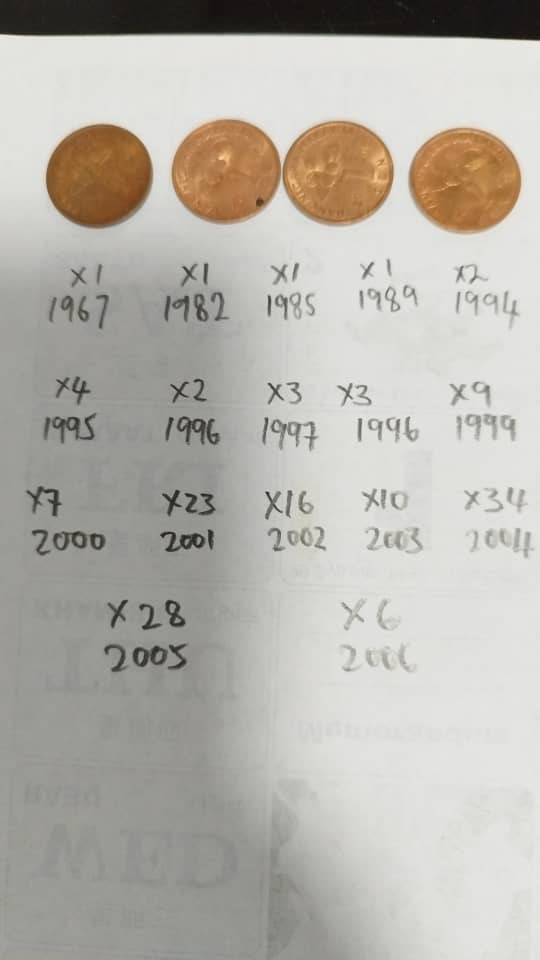 x1 x1 x1 x1 x2
1967 1982 1985 1989 1994
x4 x2 x3 x3 x9
1995 1996 1997 1996 1999
x7 x23 x16 x10 x34
2000 2001 2002 2003 2004
x28 x6
2005 2006